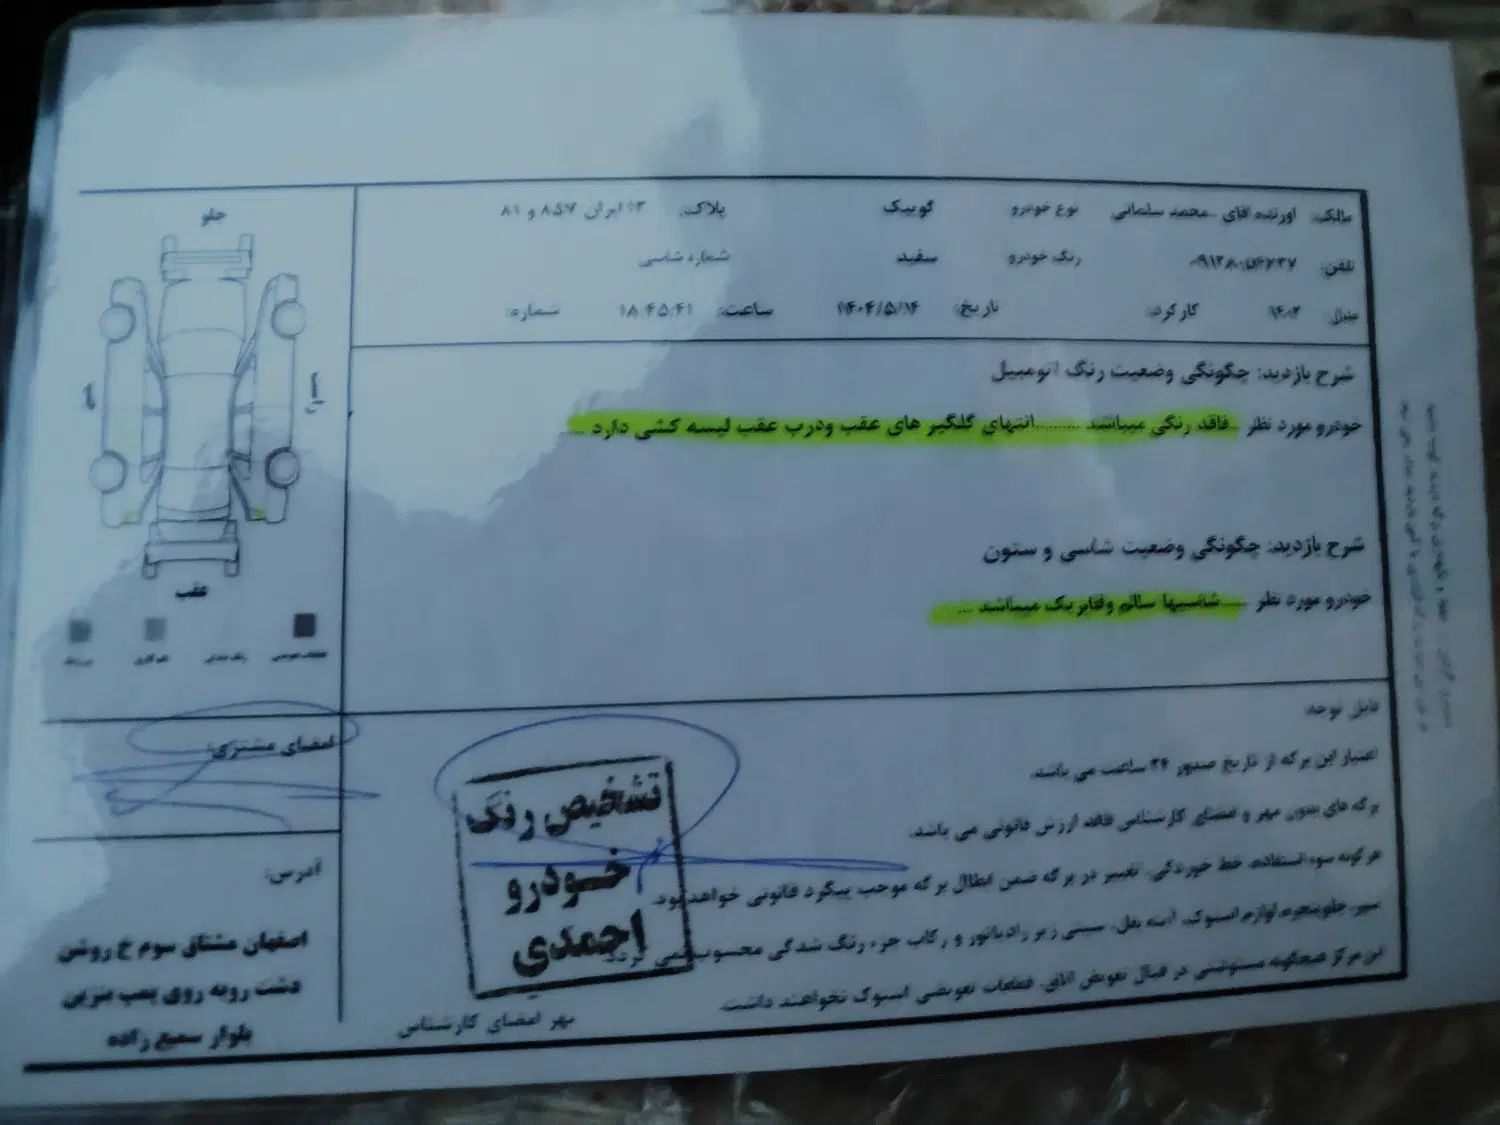 مالک: اورنده اقای ..محمد سلمانی نوع خودرو کوییک پلاک: ۱۳ ایران ۸۵۷ و ۸۱
تلفن: رنگ خودرو سفید شماره شاسی
مدل: ۱۴۰۲ کارکرد: تاریخ: ۱۴۰۴/۵/۱۴ ساعت: ۱۸:۴۵:۴۱ شماره:
شرح بازدید: چگونگی وضعیت رنگ اتومبیل
خودرو مورد نظر ...فاقد رنگی میباشد ..........انتهای گلگیر های عقب ودرب عقب لیسه کشی دارد ....
شرح بازدید: چگونگی وضعیت شاسی و ستون
خودرو مورد نظر .....شاسیها سالم وفابریک میباشد ...
جلو
عقب
قابل توجه:
اعتبار این برگه از تاریخ صدور ۲۴ ساعت می باشد.
برگه های بدون مهر و امضای کارشناس فاقد ارزش قانونی می باشد.
هر گونه سوء استفاده، خط خوردگی، تغییر در برگه ضمن ابطال برگه موجب پیگرد قانونی خواهد بود.
سپر، جلوپنجره، لوازم استوک، آینه بغل، سینی زیر رادیاتور و رکاب جزء رنگ شدگی محسوب نمی گردد.
این مرکز هیچگونه مسئولیتی در قبال تعویض اتاق، قطعات تعویضی استوک نخواهند داشت.
مهر امضای کارشناس
تشخیص رنگ
خودرو
احمدی
امضای مشتری:
آدرس:
اصفهان مشتاق سوم خ روشن
دشت روبه روی پمپ بنزین
بلوار سمیع زاده